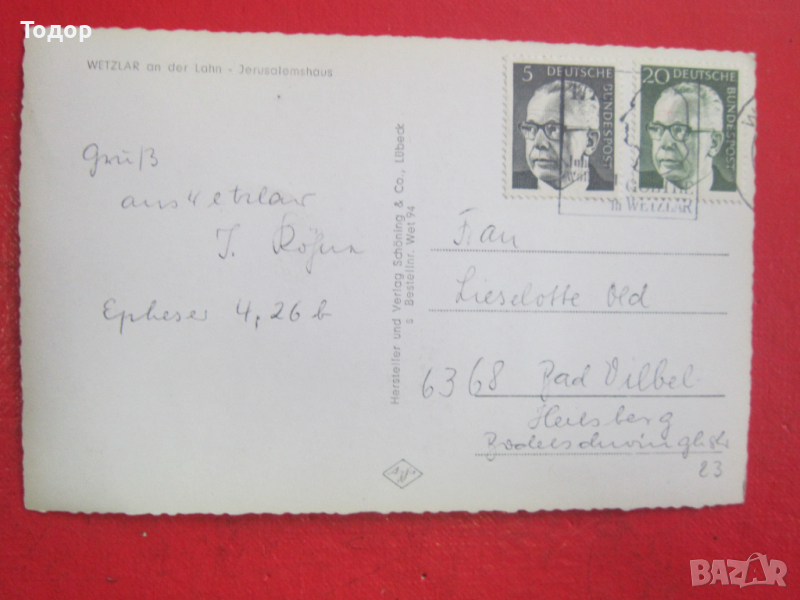 Тодор
WETZLAR an der Lahn - Jerusalemshaus
Gruß
aus Wetzlar
J.
Epheser 4, 26 b
Hersteller und Verlag Schöning & Co., Lübeck
s Bestellnr. Wet 94
5 DEUTSCHE BUNDESPOST
20 DEUTSCHE BUNDESPOST
GOETHE
in WETZLAR
Frau
Lieselotte Old
6368 Bad Vilbel
Heilsberg
Bodelschwinghstr
23
BAZAR